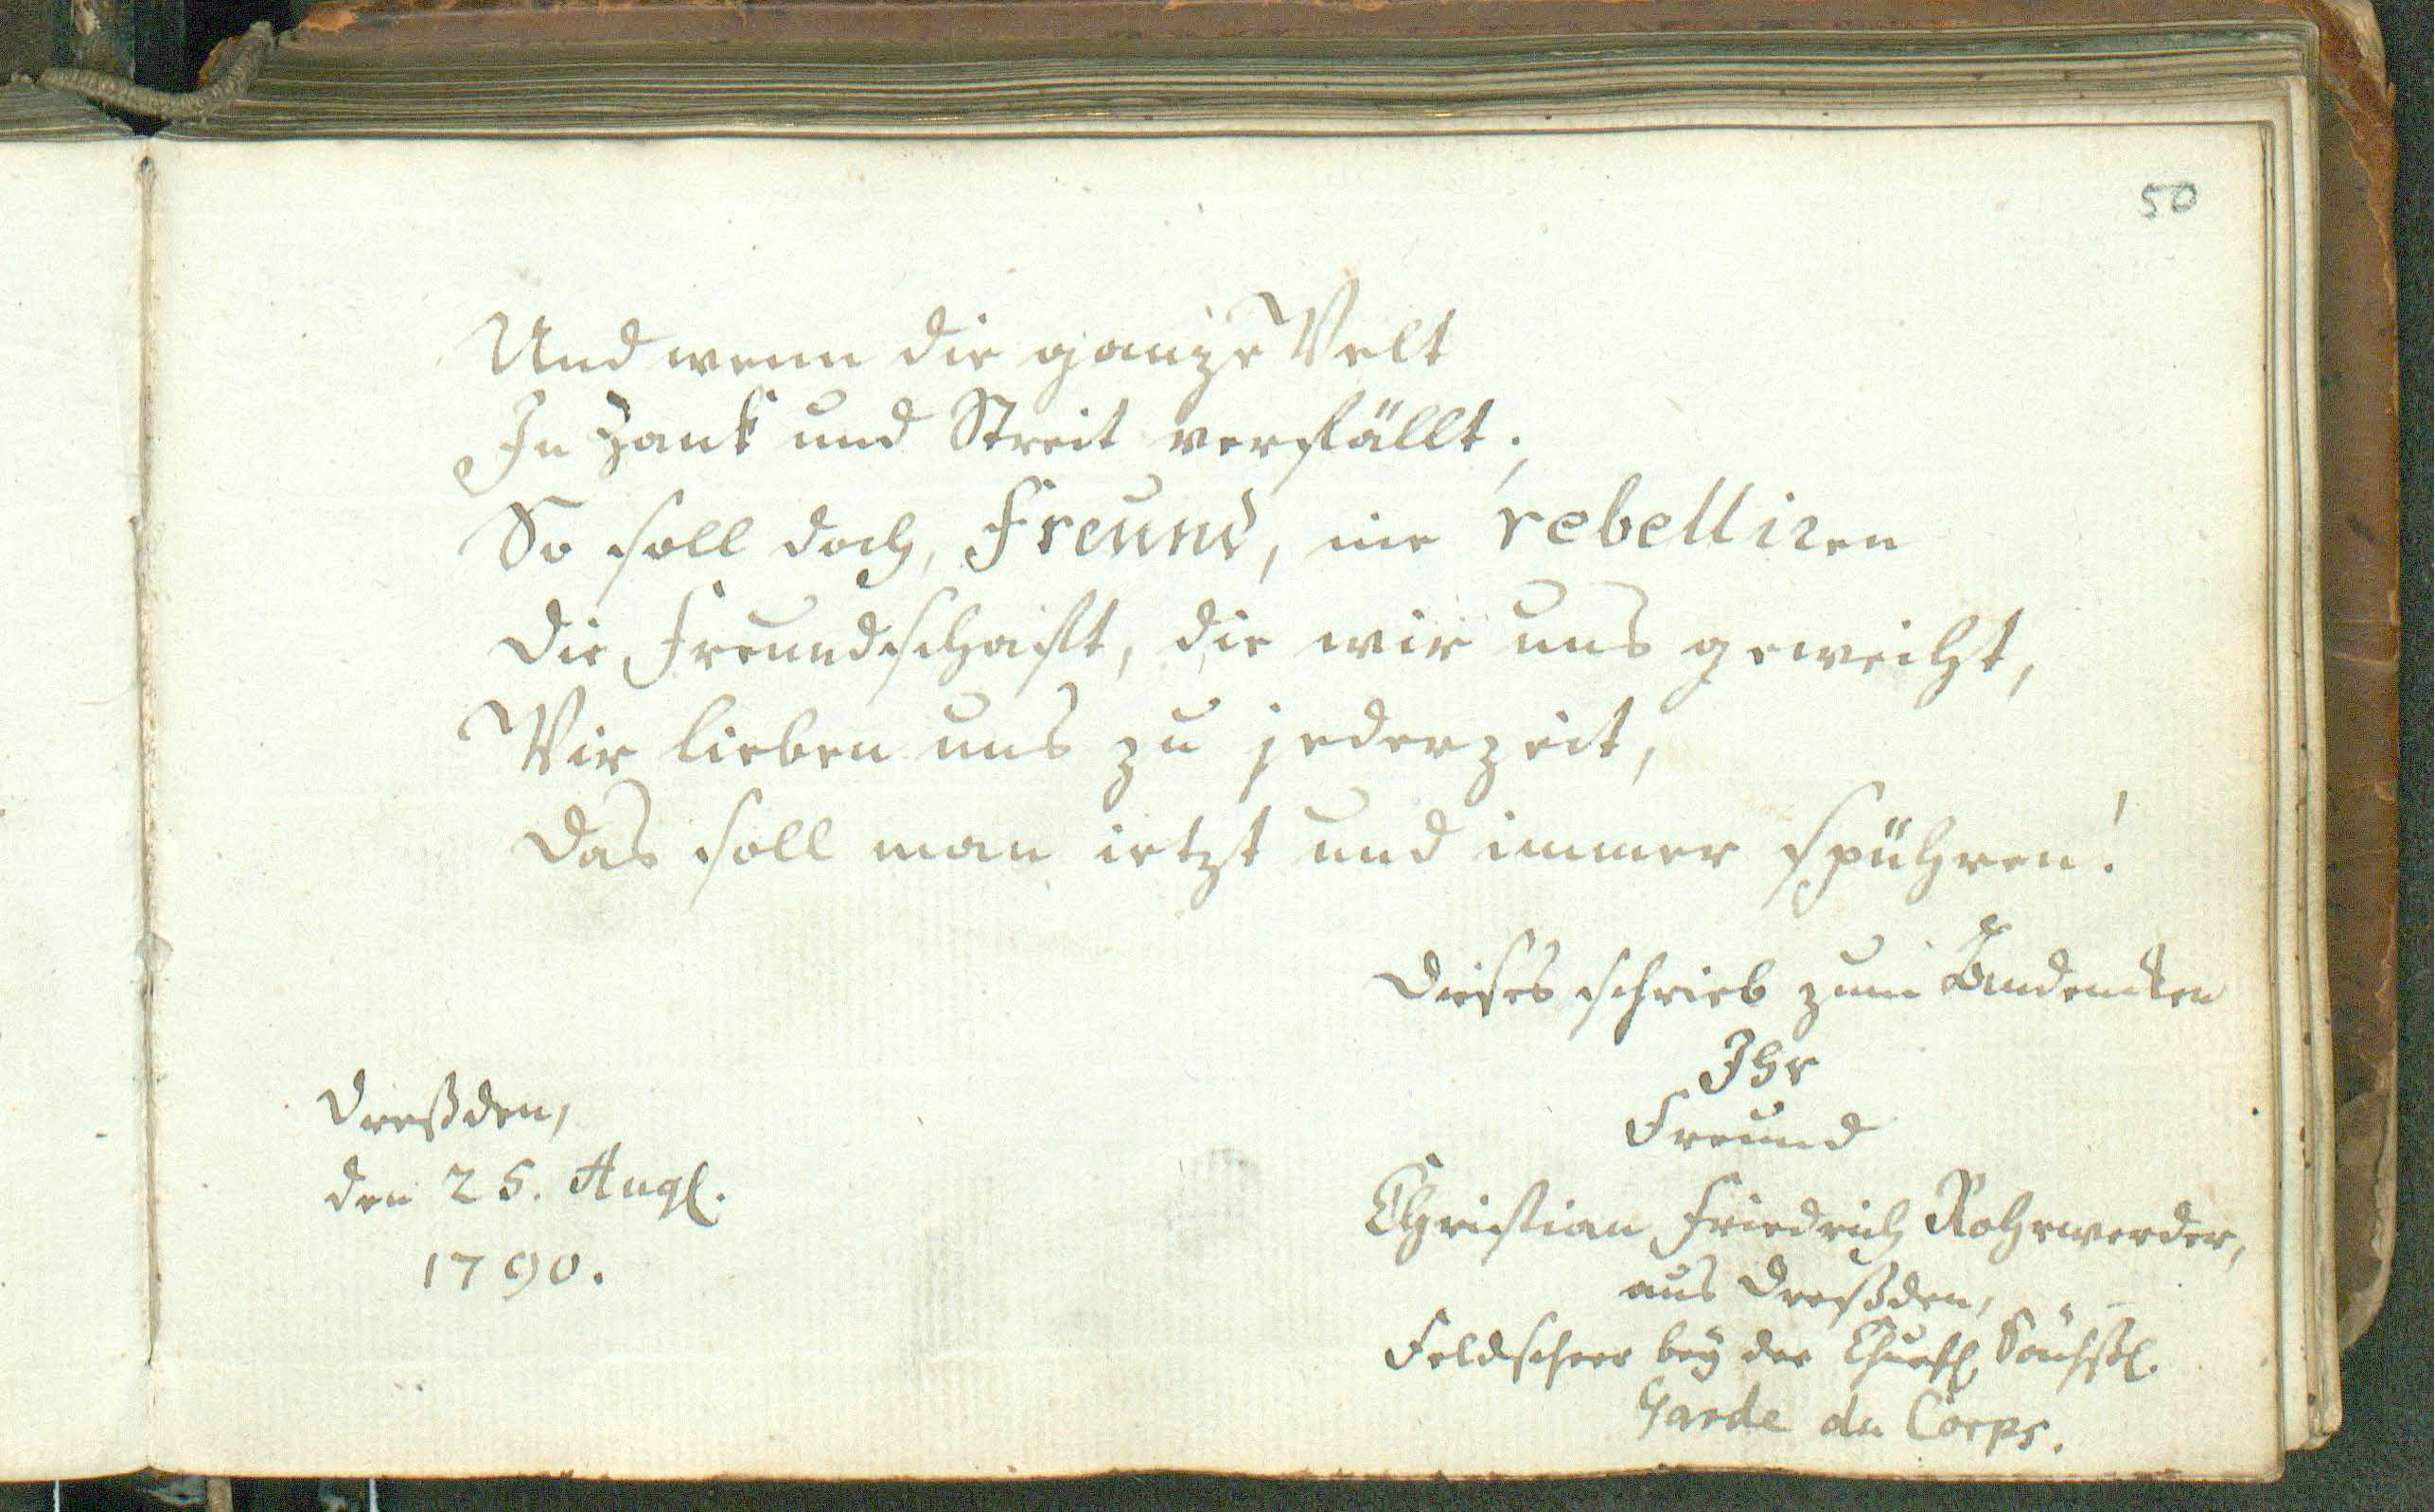 50
Und wenn die ganze Welt
In Zank und Streit verfällt;
So soll doch, Freund, nie rebelliren
Die Freundschaft, die wir uns geweiht,
Wir lieben uns zu jederzeit,
Das soll man ietzt und immer spühren!
Dieses schrieb zum Andencken
Ihr
Freund
Christian Friedrich Rohrwerder,
aus Dreßden,
Feldscheer bey der Churfl. Sächßl.
Garde du Corps.
Dreßden,
den 25. Augl.
1790.